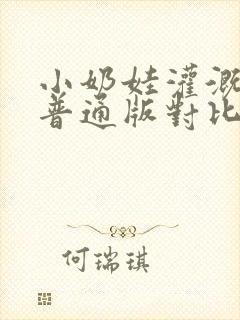 小奶娃灌溉
普通版對比
何瑞琪